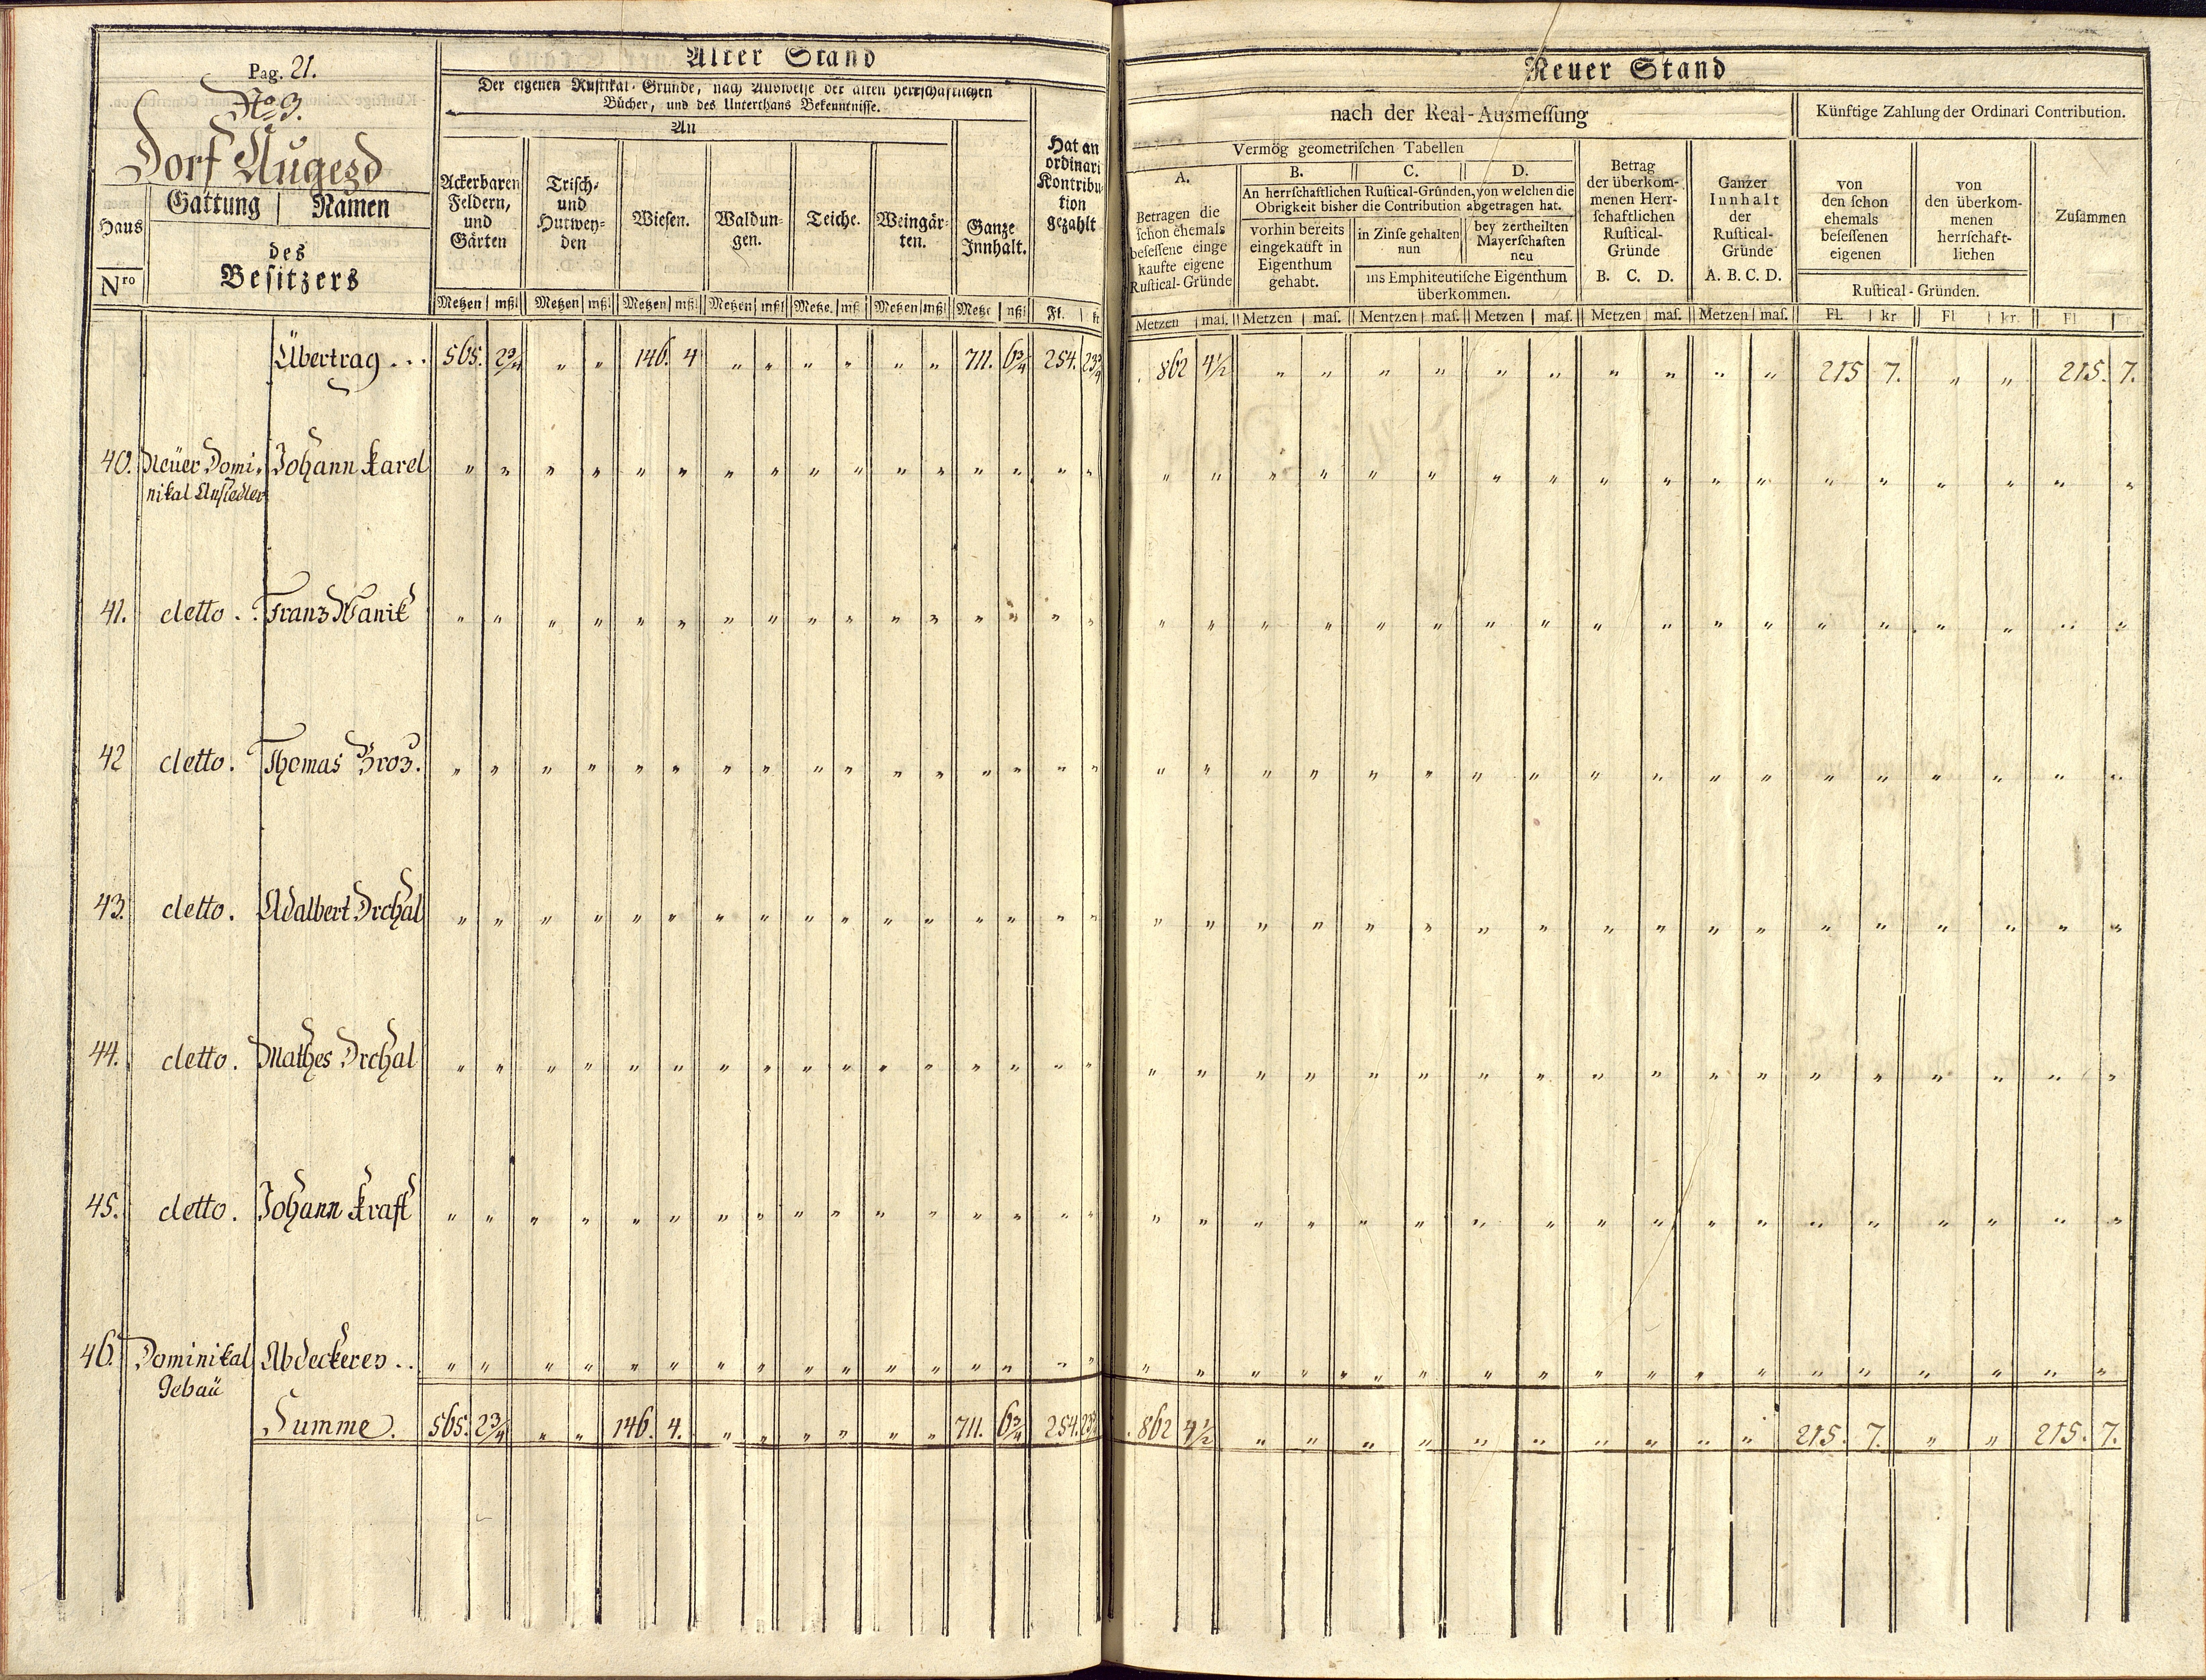 Pag. 21.
No 3.
Dorf Augezd
Haus
Nro
Gattung | Namen
des
Besitzers
Alter Stand
Der eigenen Rustikal-Gründe, nach Ausweise der alten herrschaftlichen
Bücher, und des Unterthans Bekenntnisse.
An
Ackerbaren
Feldern,
und
Gärten
Trisch-
und
Hutwey-
den
Wiesen.
Waldun-
gen.
Teiche.
Weingär-
ten.
Ganze
Innhalt.
Hat an
ordinari
Kontribu-
tion
gezahlt
Metzen | mßl Metzen | mßl Metzen | mßl Metzen | mßl Metze. | mß Metzen | mßl Metze | mßl Fl. | k
Neuer Stand
nach der Real-Ausmessung
Künftige Zahlung der Ordinari Contribution.
Vermög geometrischen Tabellen
A.
Betragen die
schon ehemals
besessene einge
kaufte eigene
Rustical-Gründe
B. C. D.
An herrschaftlichen Rustical-Gründen, von welchen die
Obrigkeit bisher die Contribution abgetragen hat.
vorhin bereits
eingekauft in
Eigenthum
gehabt.
in Zinse gehalten
nun
bey zertheilten
Mayerschaften
neu
ins Emphiteutische Eigenthum
überkommen.
Betrag
der überkom-
menen Herr-
schaftlichen
Rustical-
Gründe
B. C. D.
Ganzer
Innhalt
der
Rustical-
Gründe
A. B. C. D.
von
den schon
ehemals
besessenen
eigenen
von
den überkom-
menen
herrschaft-
lichen
Zusammen
Rustical-Gründen.
Metzen | mas. Metzen | mas. Mentzen | mas. Metzen | mas. Metzen | mas. Metzen | mas. Fl. | kr Fl | kr. Fl
Übertrag . . . 565. 2 3/4 " " 146. 4 " " " " " " 711. 6 3/4 254. 23 3/4 862 4 1/2 " " " " " " " " " " 215 7. " " 215. 7.
40. Neüer Domi- Johann Karel " " " " " " " " " " " " " " " " " " " " " " " " " " " " " " " " " "
nikal Ansiedler
41. detto . . Franz Wanik " " " " " " " " " " " " " " " " " " " " " " " " " " " " " " " " " "
42 detto. Thomas Broz. " " " " " " " " " " " " " " " " " " " " " " " " " " " " " " " " " "
43. detto. Adalbert Drchal " " " " " " " " " " " " " " " " " " " " " " " " " " " " " " " " " "
44. detto. Mathes Drchal " " " " " " " " " " " " " " " " " " " " " " " " " " " " " " " " " "
45. detto. Johann Kraft " " " " " " " " " " " " " " " " " " " " " " " " " " " " " " " " " "
46. Dominikal Abdeckerey . . " " " " " " " " " " " " " " " " " " " " " " " " " " " " " " " " " "
Gebaü
Summe. 565. 2 3/4 " " 146. 4. " " " " " " 711. 6 3/4 254. 23 3/4 862 4 1/2 " " " " " " " " " " 215. 7. " " 215. 7.